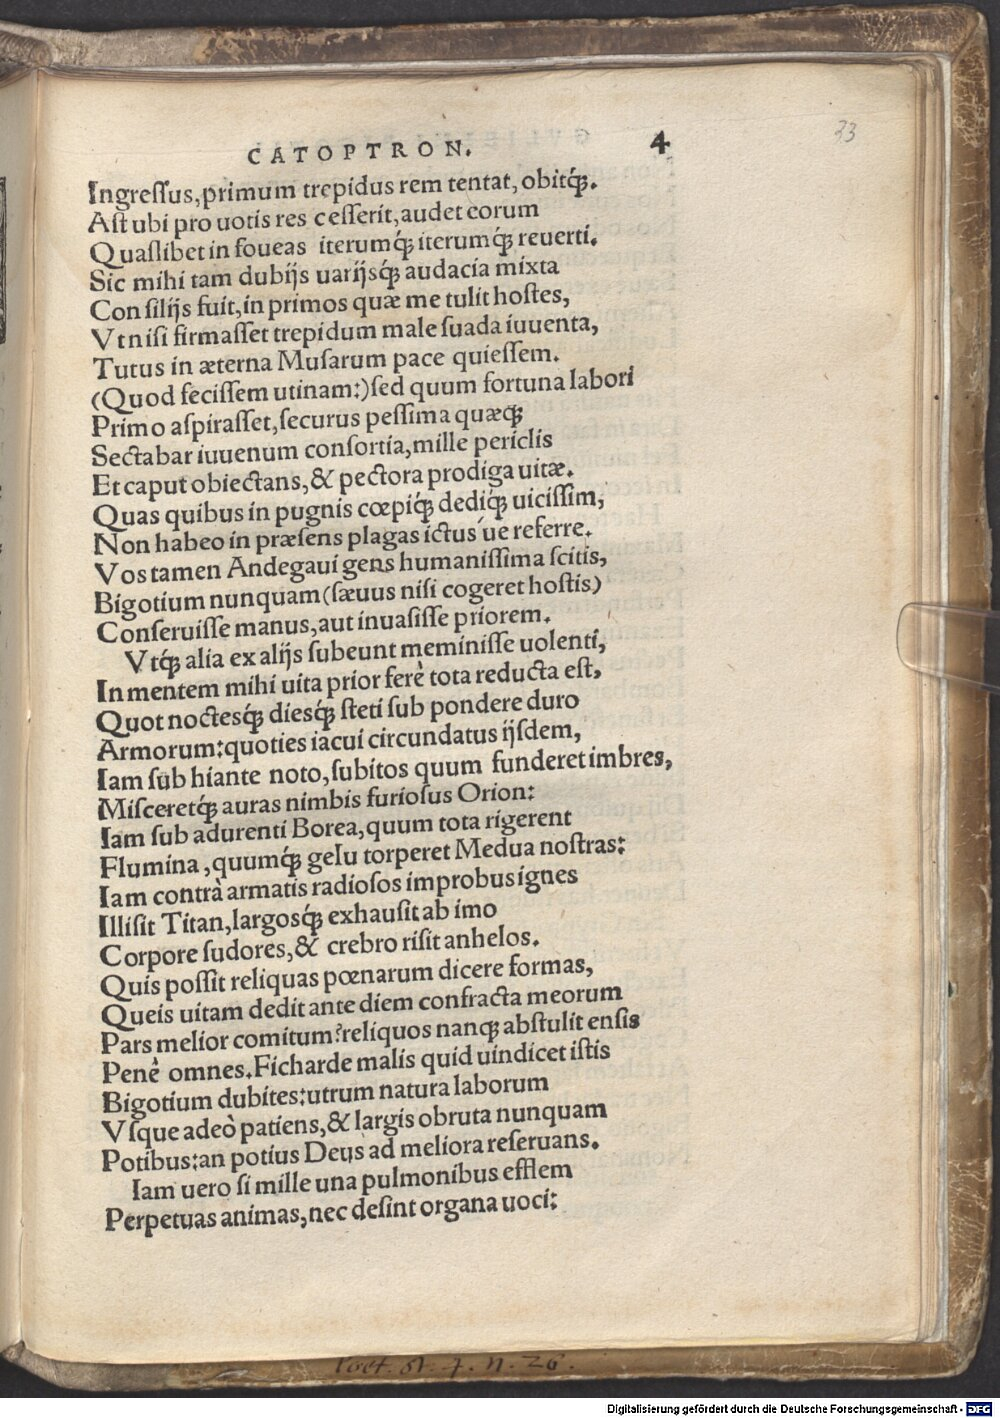 CATOPTRON. 4
33
Ingreſſus, primum trepidus rem tentat, obitq́;.
Aſt ubi pro uotis res ceſſerit, audet eorum
Quaslibet in foueas iterumq́; iterumq́; reuerti.
Sic mihi tam dubijs uarijsq́; audacia mixta
Conſilijs fuit, in primos quæ me tulit hoſtes,
Vt niſi firmaſſet trepidum male ſuada iuuenta,
Tutus in æterna Muſarum pace quieſſem.
(Quod feciſſem utinam:) ſed quum fortuna labori
Primo aſpiraſſet, ſecurus peſſima quæq;
Sectabar iuuenum conſortia, mille periclis
Et caput obiectans, & pectora prodiga uitæ.
Quas quibus in pugnis cœpiq́; dediq́; uiciſſim,
Non habeo in præſens plagas ictus´ue referre.
Vos tamen Andegaui gens humaniſſima ſcitis,
Bigotium nunquam (ſæuus niſi cogeret hoſtis)
Conſeruiſſe manus, aut inuaſiſſe priorem.
Vtq́; alia ex alijs ſubeunt meminiſſe uolenti,
In mentem mihi uita prior ferè tota reducta eſt,
Quot noctesq́; diesq́; ſteti ſub pondere duro
Armorum: quoties iacui circundatus ijſdem,
Iam ſub hiante noto, ſubitos quum funderet imbres,
Miſceretq́; auras nimbis furioſus Orion:
Iam ſub adurenti Borea, quum tota rigerent
Flumina, quumq́; gelu torperet Medua noſtras:
Iam contrà armatis radioſos improbus ignes
Illiſit Titan, largosq́; exhauſit ab imo
Corpore ſudores, & crebro riſit anhelos.
Quis poſſit reliquas pœnarum dicere formas,
Queis uitam dedit ante diem confracta meorum
Pars melior comitum? reliquos nanq; abſtulit enſis
Penè omnes. Ficharde malis quid uindicet iſtis
Bigotium dubites: utrum natura laborum
Vſque adeò patiens, & largis obruta nunquam
Potibus: an potius Deus ad meliora reſeruans.
Iam uero ſi mille una pulmonibus efflem
Perpetuas animas, nec deſint organa uoci:
Poet. ſt. 7. n. 26.
Digitalisierung gefördert durch die Deutsche Forschungsgemeinschaft - DFG